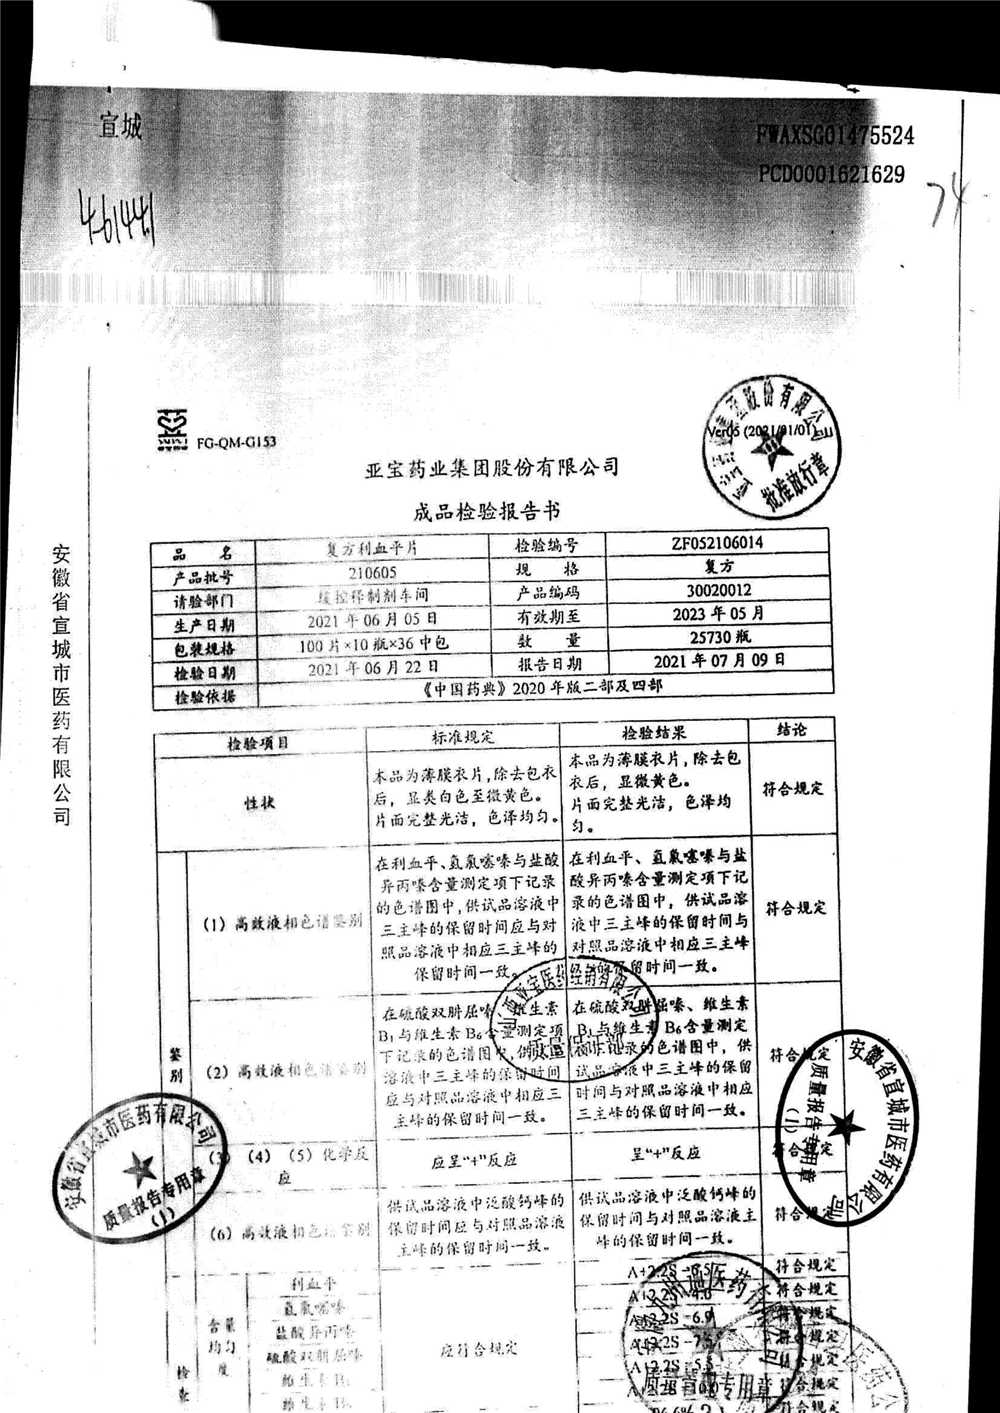 宣城
FWAXSG01475524
PCD0001621629
461441
74
安徽省宣城市医药有限公司
FG-QM-G153
Ver05 (2021/01/01)
批准放行章
亚宝药业集团股份有限公司
成品检验报告书
品 名 复方利血平片 检验编号 ZF052106014
产品批号 210605 规 格 复方
请验部门 缓控释制剂车间 产品编码 30020012
生产日期 2021 年 06 月 05 日 有效期至 2023 年 05 月
包装规格 100 片×10 瓶×36 中包 数 量 25730 瓶
检验日期 2021 年 06 月 22 日 报告日期 2021 年 07 月 09 日
检验依据 《中国药典》2020 年版二部及四部
检验项目 标准规定 检验结果 结论
性状
本品为薄膜衣片,除去包衣
后，显类白色至微黄色。
片面完整光洁，色泽均匀。
本品为薄膜衣片,除去包
衣后，显微黄色。
片面完整光洁，色泽均
匀。
符合规定
鉴别
(1) 高效液相色谱鉴别
在利血平、氢氯噻嗪与盐酸
异丙嗪含量测定项下记录
的色谱图中,供试品溶液中
三主峰的保留时间应与对
照品溶液中相应三主峰的
保留时间一致。
在利血平、氢氯噻嗪与盐
酸异丙嗪含量测定项下记
录的色谱图中，供试品溶
液中三主峰的保留时间与
对照品溶液中相应三主峰
的保留时间一致。
符合规定
(2) 高效液相色谱鉴别
在硫酸双肼屈嗪、维生素
B₁与维生素 B₆含量测定项
下记录的色谱图中,供试品
溶液中三主峰的保留时间
应与对照品溶液中相应三
主峰的保留时间一致。
在硫酸双肼屈嗪、维生素
B₁与维生素 B₆含量测定
项下记录的色谱图中，供
试品溶液中三主峰的保留
时间与对照品溶液中相应
三主峰的保留时间一致。
符合规定
(3) (4) (5) 化学反
应
应呈“+”反应
呈“+”反应
符合规定
(6) 高效液相色谱鉴别
供试品溶液中泛酸钙峰的
保留时间应与对照品溶液
主峰的保留时间一致。
供试品溶液中泛酸钙峰的
保留时间与对照品溶液主
峰的保留时间一致。
符合规定
检查
含量
均匀
度
利血平
氢氯噻嗪
盐酸异丙嗪
硫酸双肼屈嗪
维生素 B₁
维生素 B₆
应符合规定
A+2.2S
符合规定
符合规定
符合规定
符合规定
符合规定
符合规定
符合规定
山西亚宝医药经销有限公司
质量保证部
安徽省宣城市医药有限公司
质量报告专用章
(1)
安徽省宣城市医药有限公司
质量报告专用章
(1)